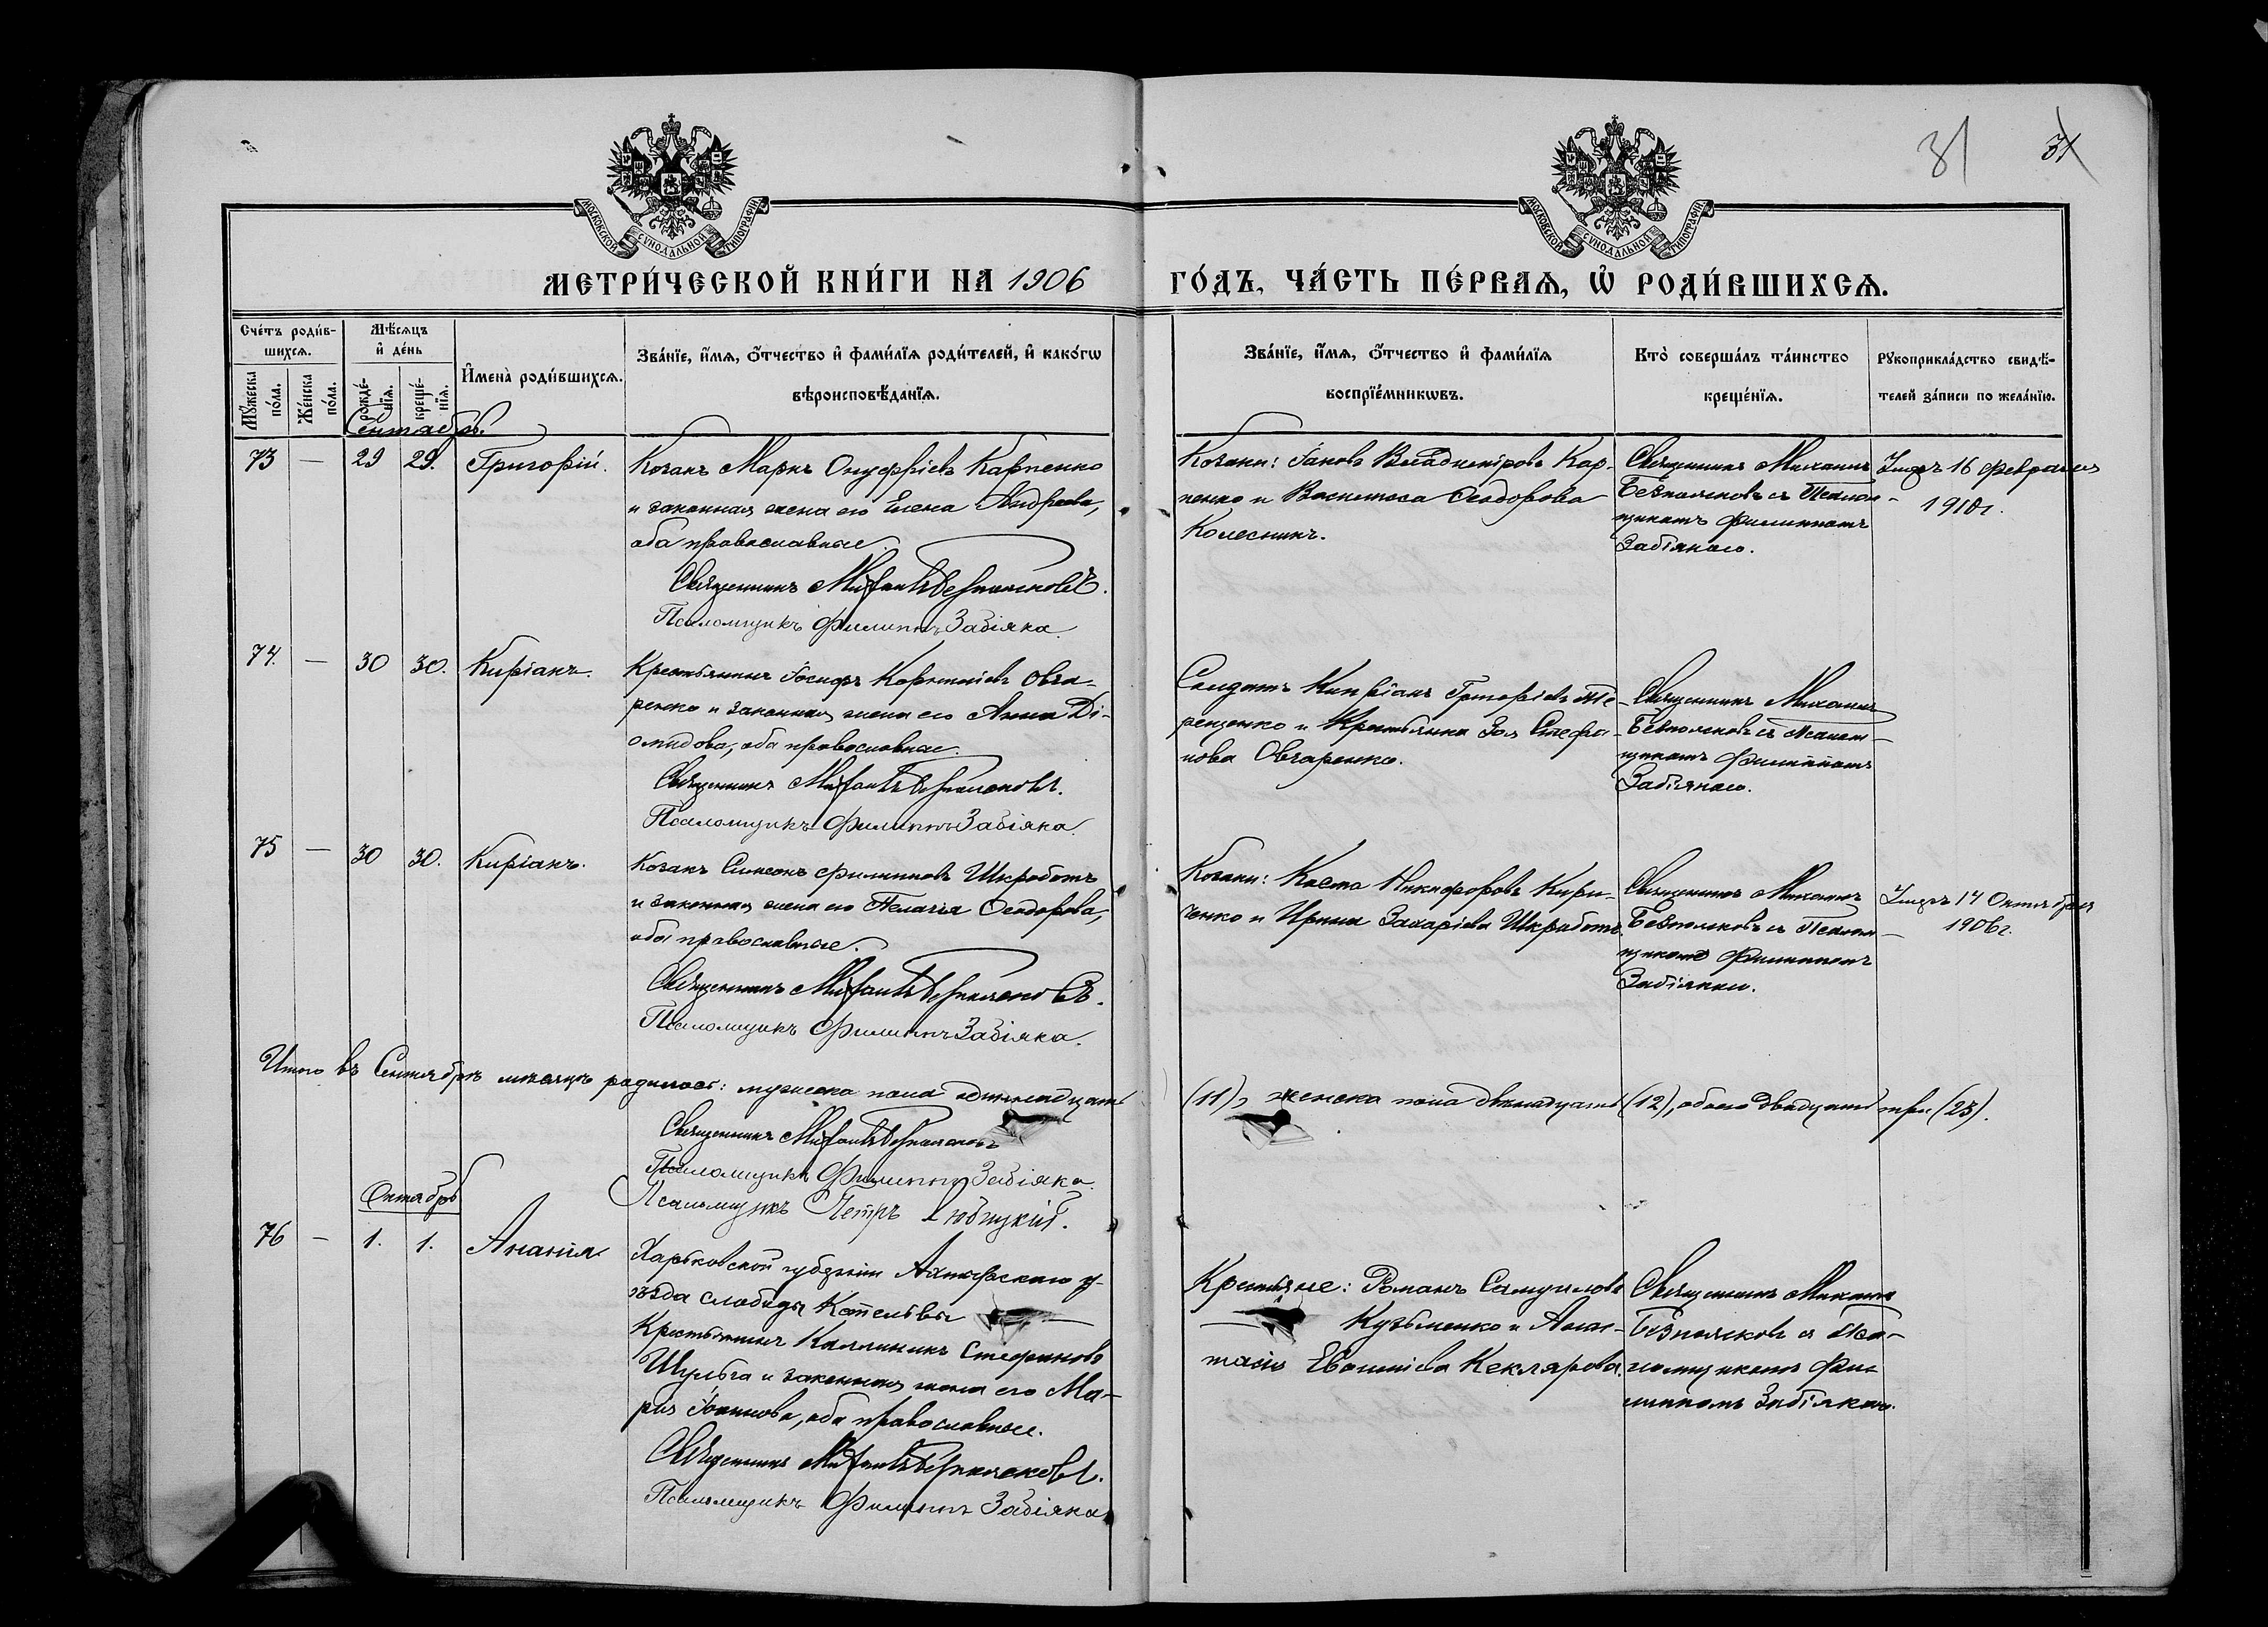 31
31
МОСКОВСКОЙ СУНОДАЛЬНОЙ ТИПОГРАФІИ
МОСКОВСКОЙ СУНОДАЛЬНОЙ ТИПОГРАФІИ
МЕТРИ́ЧЕСКОЙ КНИ́ГИ НА 1906 ГО́ДЪ, ЧА́СТЬ ПЕ́РВАѦ, Ѡ҆ РОДИ́ВШИХСѦ.
Сче́тъ роди́в-
шихсѧ.
Мѣ́сѧцъ
и҆ де́нь
Мꙋ́жеска по́ла.
Же́нска по́ла.
рожде́-
нїѧ.
креще́-
нїѧ.
И҆мена̀ роди́вшихсѧ.
Зва́нїе, и҆́мѧ, ѻ҆́тчество и҆ фами́лїѧ роди́телей, и҆ како́гѡ
вѣроисповѣ́данїѧ.
Зва́нїе, и҆́мѧ, ѻ҆́тчество и҆ фами́лїѧ
воспрїе́мникѡвъ.
Кто̀ соверша́лъ та́инство
креще́нїѧ.
Рꙋкоприкла́дство свидѣ́-
телей за́писи по жела́нїю.
Сентябрь.
73 — 29 29. Григорій.
Козакъ Маркъ Онуфріевъ Карпенко
и законная жена его Елена Андреева,
оба православные.
Священникъ Михаилъ Безпалсковъ.
Псаломщикъ Филиппъ Забіяка.
Козаки: Іаковъ Владиміровъ Кар-
пенко и Васислиса Ѳеодорова
Колесникъ.
Священникъ Михаилъ
Безпалсковъ съ Псалом-
щикомъ Филиппомъ
Забіякою.
Умеръ 16 февраля
1910г.
74. — 30 30. Киріакъ.
Крестьянинъ Іосифъ Корниліевъ Овча-
ренко и законная жена его Анна Ді-
омидова, оба православные.
Священникъ Михаилъ Безпалсковъ.
Псаломщикъ Филиппъ Забіяка.
Солдатъ Кипріанъ Григоріевъ Те-
рещенко и Крестьянка Зоя Стефа-
нова Овчаренко.
Священникъ Михаилъ
Безпалсковъ съ Псалом-
щикомъ Филиппомъ
Забіякою.
75 — 30 30. Киріакъ.
Козакъ Симеонъ Филипповъ Шкработъ
и законная жена его Пелагія Ѳеодорова,
оба православные.
Священникъ Михаилъ Безпалсковъ.
Псаломщикъ Филиппъ Забіяка.
Козаки: Косма Никифоровъ Кири-
ченко и Ирина Захаріева Шкработъ.
Священникъ Михаилъ
Безпалсковъ съ Псалом-
щикомъ Филиппомъ
Забіякою.
Умеръ 14 Октября
1906г.
Итого въ Сентябрѣ мѣсяцѣ родилось: мужеска пола одиннадцать (11), женска пола двѣнадцать (12), обоего двадцать три (23).
Священникъ Михаилъ Безпалсковъ
Псаломщикъ Филиппъ Забіяка.
Псаломщикъ Петръ Любицкій.
Октябрь
76 — 1. 1. Ананія
Харьковской губерніи Ахтырскаго у-
ѣзда слободы Котельвы
Крестьянинъ Каллиникъ Стефановъ
Шульга и законная жена его Ма-
рія Іоаннова, оба православные.
Священникъ Михаилъ Безпалсковъ.
Псаломщикъ Филиппъ Забіяка
Крестьяне: Романъ Самуиловъ
Кузьменко и Анас-
тасія ЕвѳиміеваIleклярова.
Священникъ Михаилъ
Безпалсковъ съ Пса-
ломщикомъ Фи-
липпомъ Забіякою.